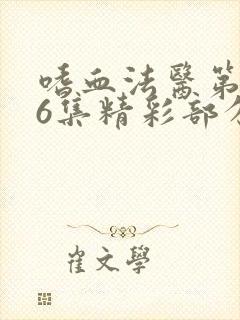 嗜血法醫第
6集精彩部分
崔文學